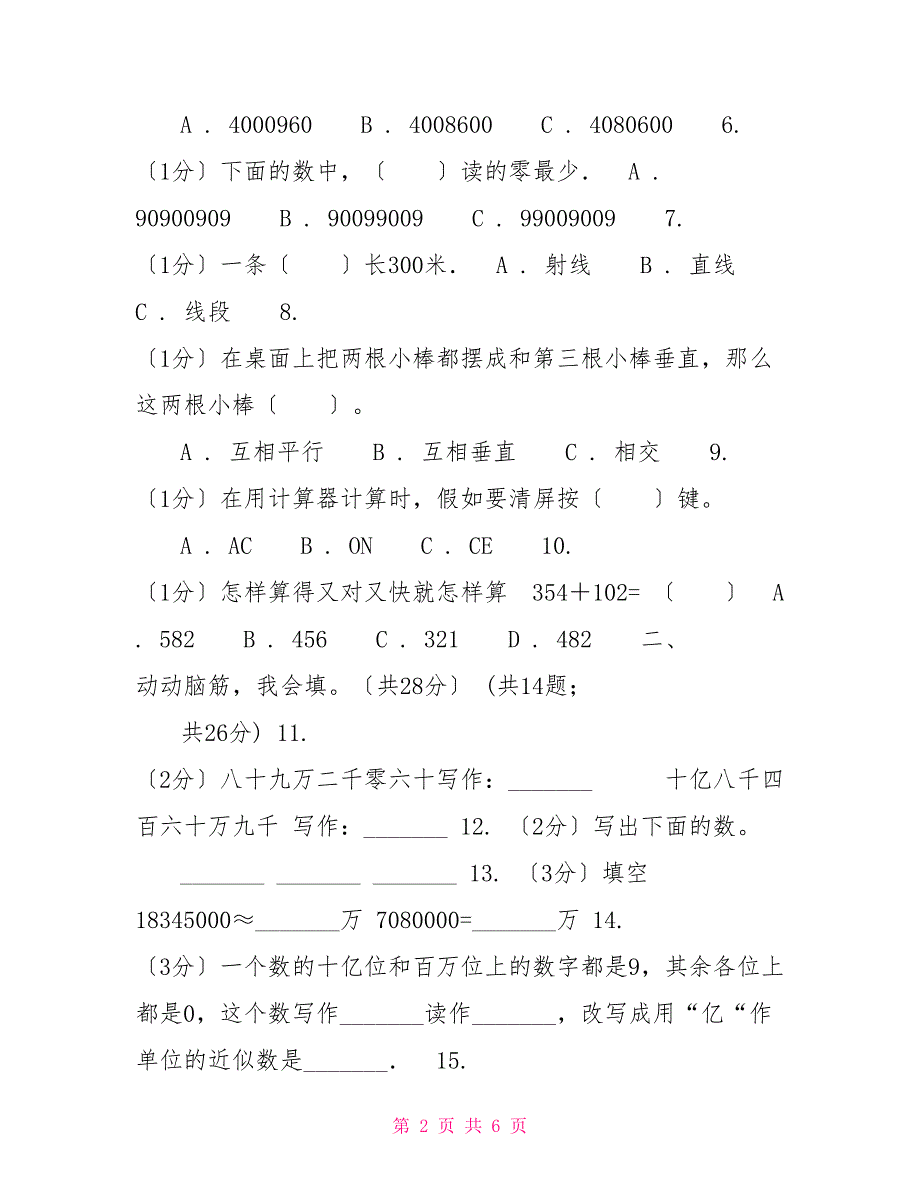 A . 4000960 B . 4008600 C . 4080600 6.
〔1分〕下面的数中，〔 〕读的零最少． A .
90900909 B . 90099009 C . 99009009 7.
〔1分〕一条〔 〕长300米． A . 射线 B . 直线
C . 线段 8.
〔1分〕在桌面上把两根小棒都摆成和第三根小棒垂直，那么
这两根小棒〔 〕。
A . 互相平行 B . 互相垂直 C . 相交 9.
〔1分〕在用计算器计算时，假如要清屏按〔 〕键。
A . AC B . ON C . CE 10.
〔1分〕怎样算得又对又快就怎样算 354＋102= 〔 〕 A
. 582 B . 456 C . 321 D . 482 二、
动动脑筋，我会填。〔共28分〕 (共14题；
共26分) 11.
〔2分〕八十九万二千零六十写作：_______ 十亿八千四
百六十万九千 写作：_______ 12. 〔2分〕写出下面的数。
_______ _______ _______ 13. 〔3分〕填空
18345000≈_______万 7080000=_______万 14.
〔3分〕一个数的十亿位和百万位上的数字都是9，其余各位上
都是0，这个数写作_______读作_______，改写成用“亿“作
单位的近似数是_______． 15.
第 2 页 共 6 页